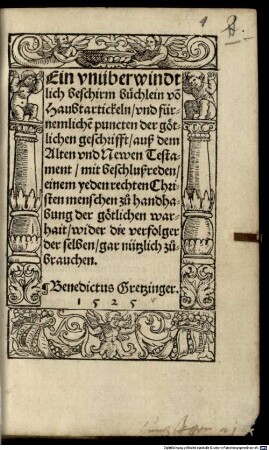 Ein vnüberwindt
lich beschirm büchlein võ
Haubtartickeln/vnd für-
nemlichẽ puncten der göt-
lichen geschrifft/auß dem
Alten vnd Newen Testa-
ment/mit beschlußreden/
einem yeden rechten Chri
sten menschen zů handha-
bung der götlichen war-
hait/wider die verfolger
der selben/gar nützlich zů-
brauchen.
¶Benedictus Gretzinger.
1525